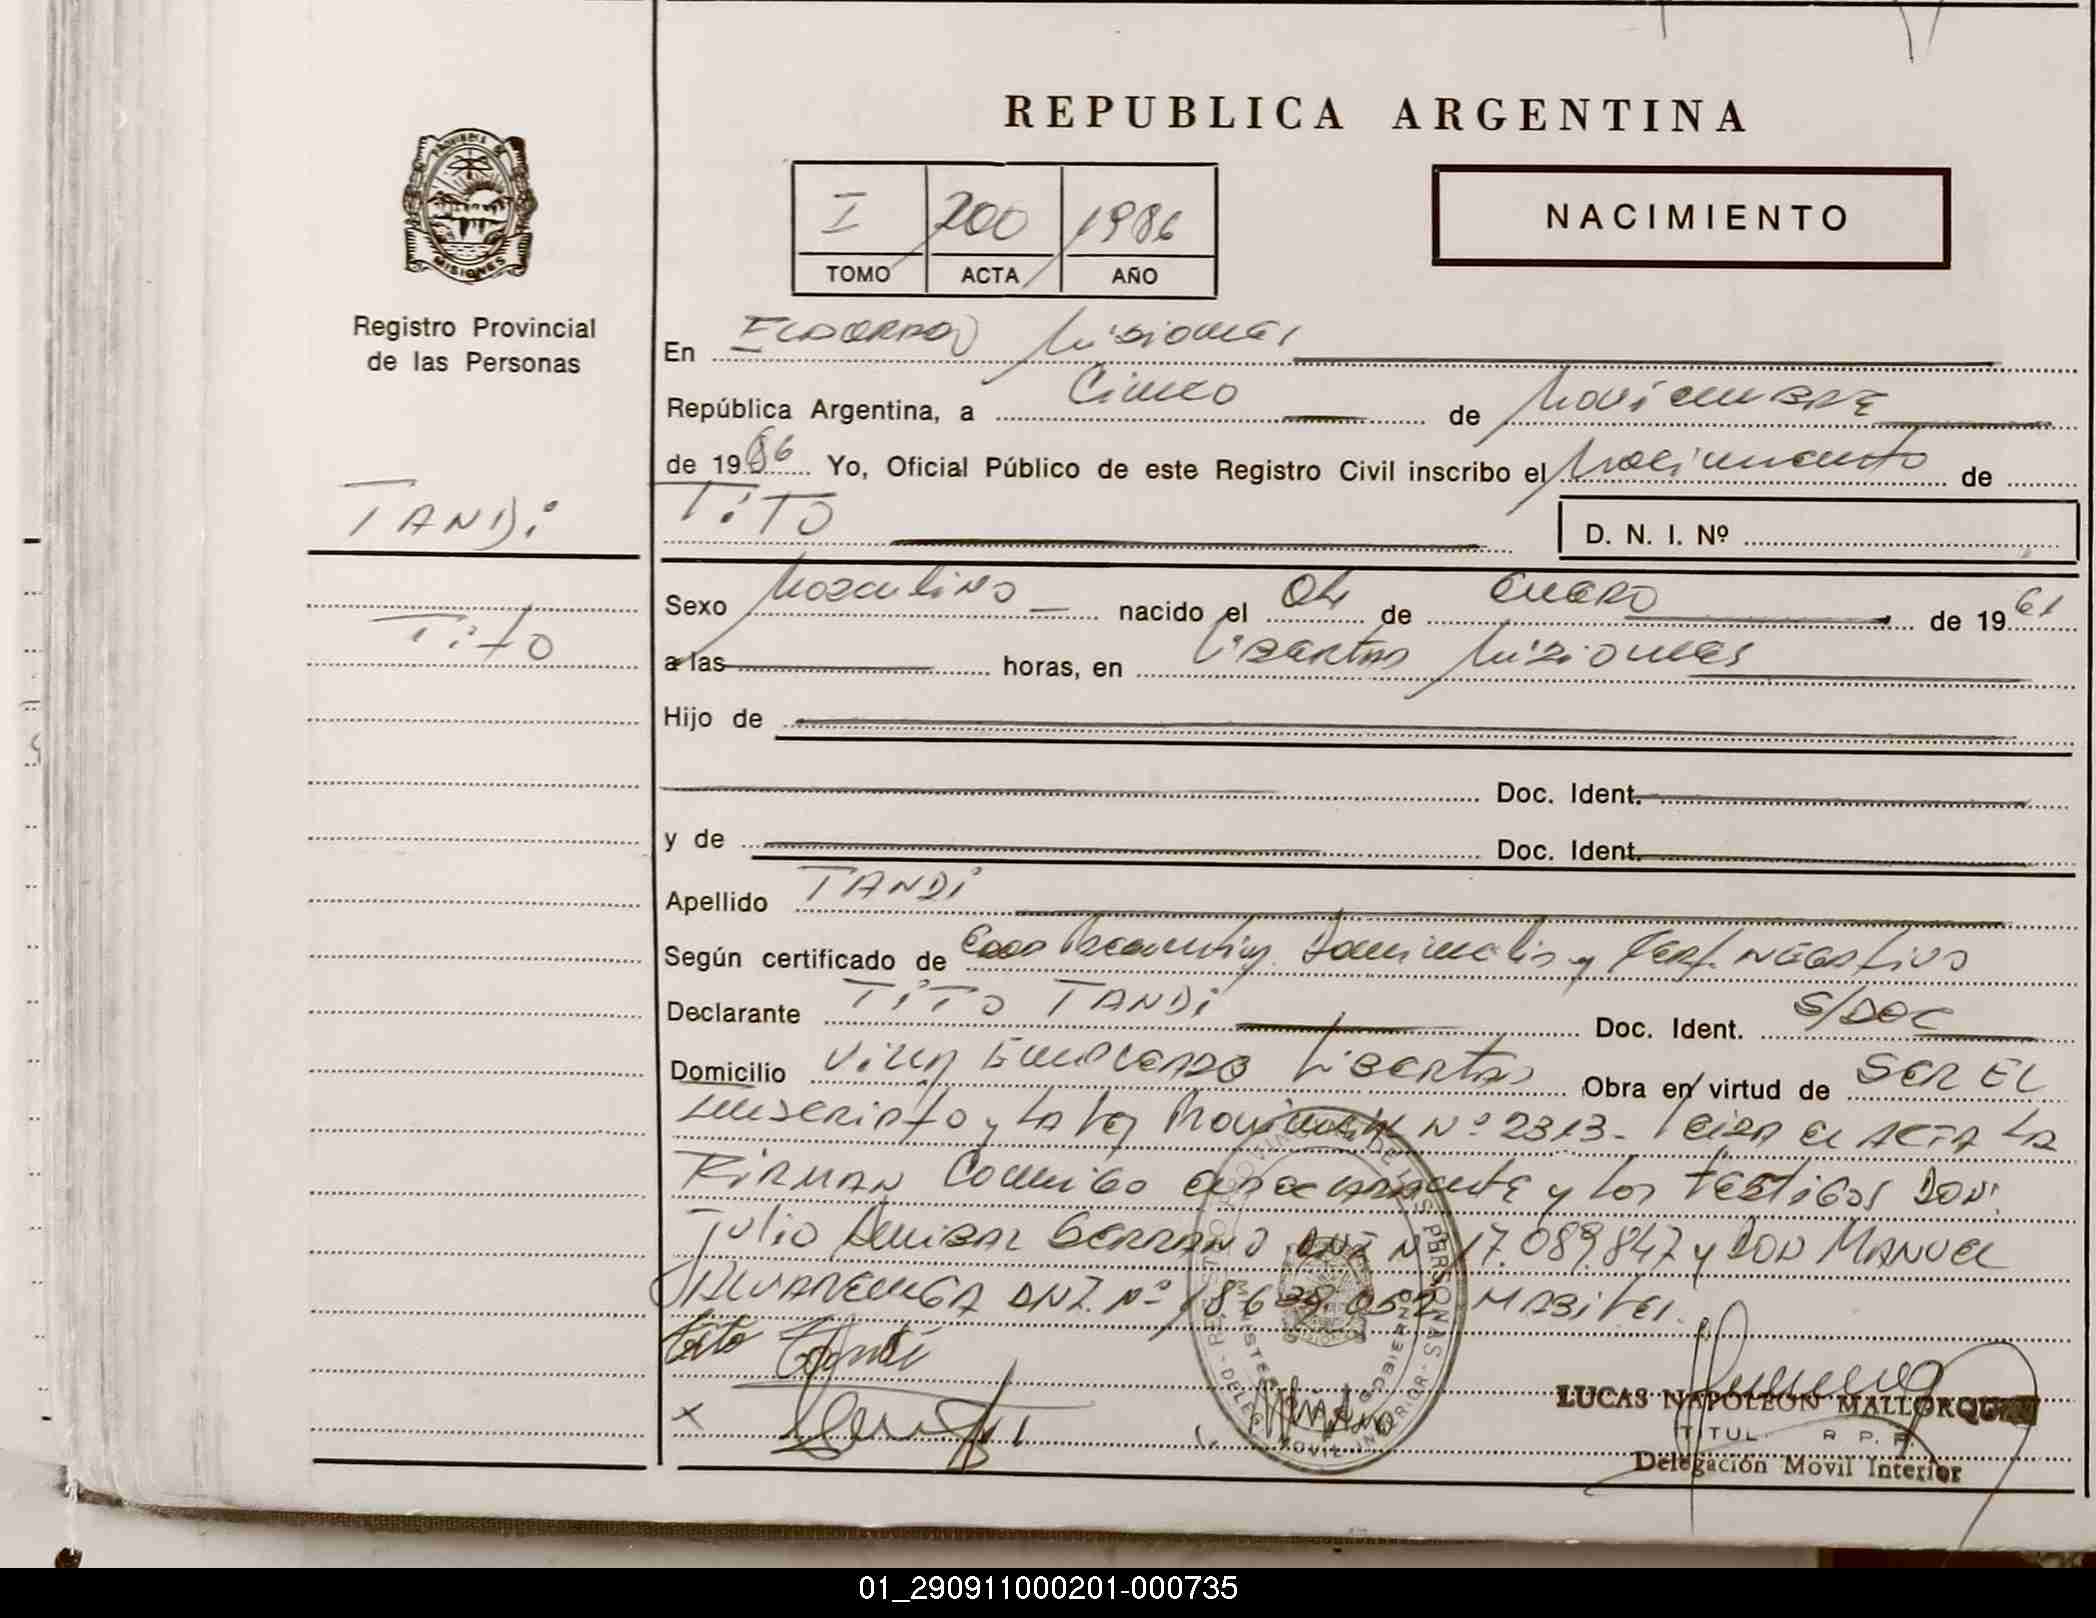 REPUBLICA ARGENTINA
PROVINCIA DE
MISIONES
I 200 1986
TOMO ACTA AÑO
NACIMIENTO
Registro Provincial
de las Personas
En ELDORADO Misiones
República Argentina, a Cinco de Noviembre
de 1986 Yo, Oficial Público de este Registro Civil inscribo el Nacimiento de
TANDi
TiTO
D. N. I. Nº
Tito
Sexo Masculino nacido el 04 de enero de 1961
a las horas, en Libertad Misiones
Hijo de
Doc. Ident.
y de Doc. Ident.
Apellido TANDi
Según certificado de y Cert. Negativo
Declarante TiTO TANDi Doc. Ident. S/DOC
Domicilio Villa Libertad Obra en virtud de SER EL
inscripto y La Ley Provincial Nº 2313- Leida el ACTA LA
FIRMAN Conmigo el declarante y Los Testigos DON:
Julio Anibal Serrano DNI Nº 17.089.847 y DON MANUEL
ALVARENGA DNI. Nº 18.6 052 HABiLEs.
Tito Tandi
LUCAS NAPOLEON MALLORQUIN
TITUL. R. P. P.
Delegación Movil Interior
01_290911000201-000735